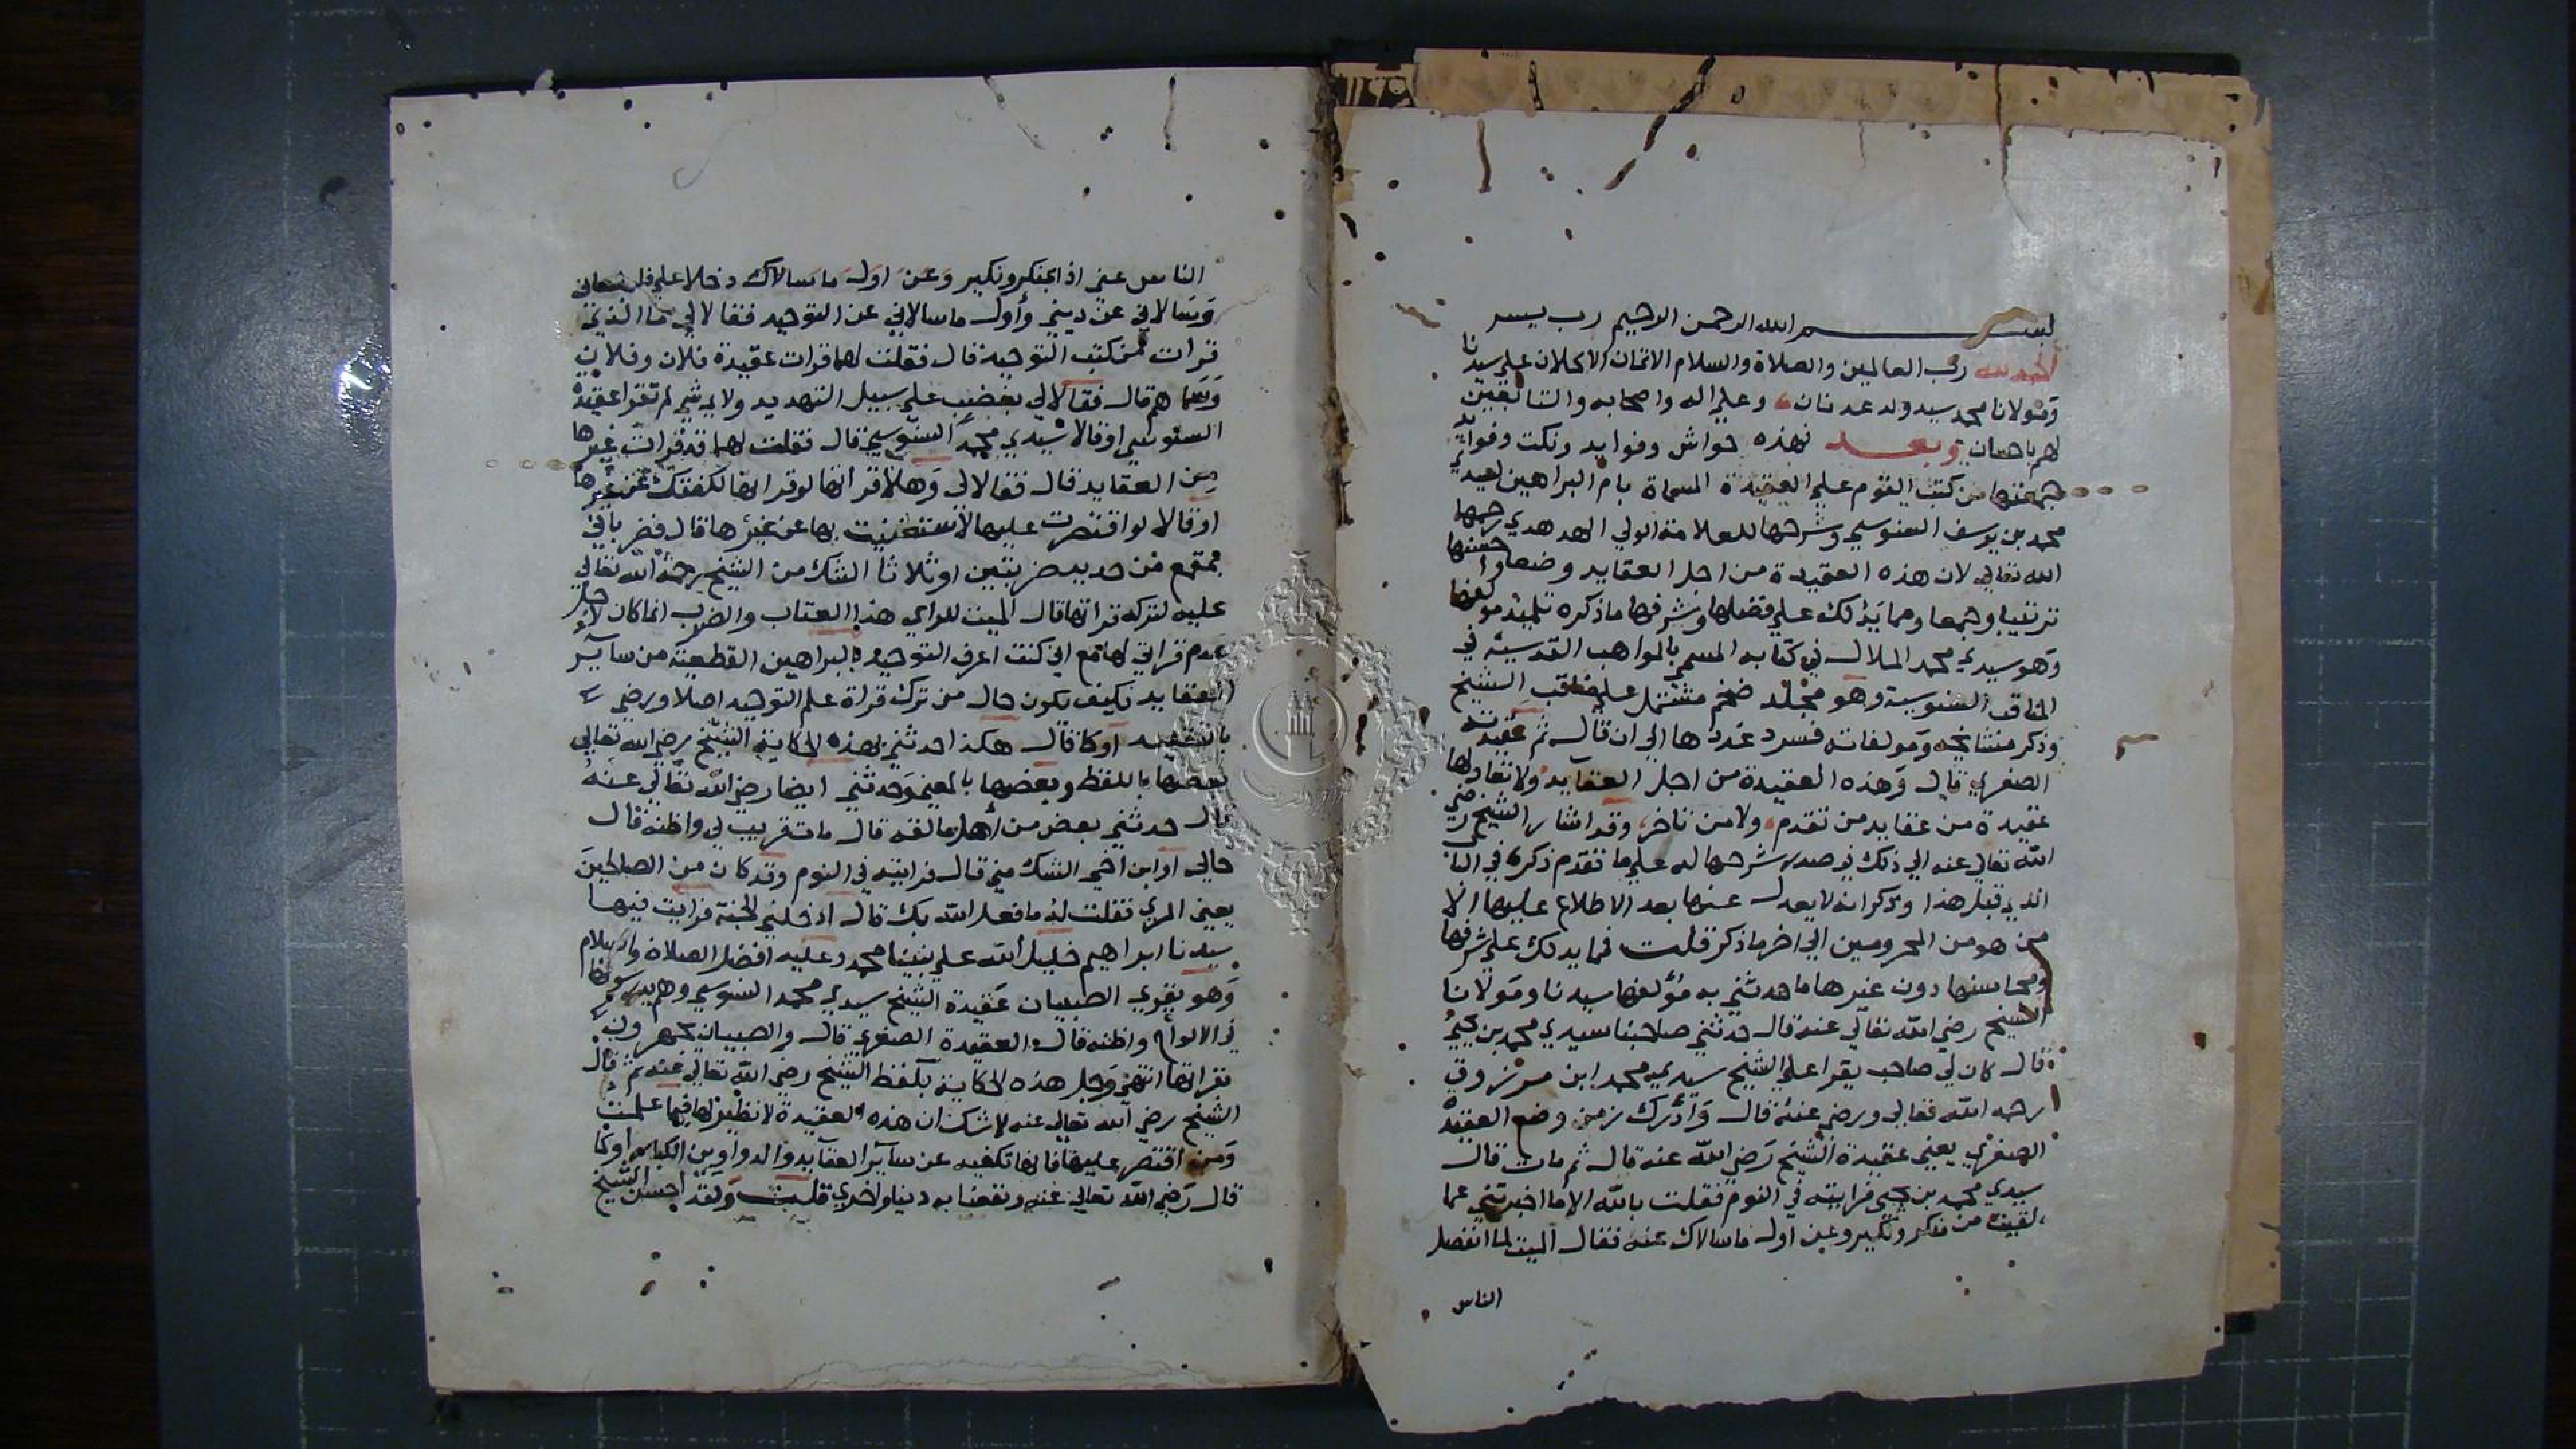 بسم الله الرحمن الرحيم رب يسر
الحمد لله رب العالمين والصلاة والسلام الاتمان الاكملان علي سيدنا
ومولانا محمد سيد ولد عدنان وعلي اله واصحابه والتابعين
لهم باحسان وبعد فهذه حواش وفوايد ونكت وفوايد
جمعتها من كتب القوم علي العقيدة المسماة بام البراهين لسيدي
محمد بن يوسف السنوسي وشرحها للعلامة الولي الهدهدي رحمها
الله تعالي لان هذه العقيدة من اجل العقايد وضعا واحسنها
ترتيبا وجمعا ومما يدلك علي فضلها وشرفها ما ذكره تلميذ مولفها
وهو سيدي محمد الملالي في كتابه المسمي بالمواهب القدسية في
المناقب السنوسية وهو مجلد ضخم مشتمل علي مناقب الشيخ
وذكر مشايخه ومولفاته فسرد عددها الي ان قال ثم عقيدته
الصغري قال وهذه العقيدة من اجل العقايد ولا تعادلها
عقيدة من عقايد من تقدم ولا من تاخر وقد اشار الشيخ رضي
الله تعالي عنه الي ذلك في صدر شرحها له علي ما تقدم ذكره في
الذي قبل هذا وذكر انه لا يعدل عنها بعد الاطلاع عليها الا
من هو من المحرومين الي اخر ما ذكر قلت فما يدلك علي شرفها
ومحاسنها دون غيرها ما حدثني به مؤلفها سيدنا ومولانا
الشيخ رضي الله تعالي عنه قال حدثني صاحبنا سيدي محمد بن يحيي
قال كان لي صاحب يقرا علي الشيخ سيدي محمد ابن مرزوق
رحمه الله تعالي ورضي عنه قال وادرك زمن وضع العقيدة
الصغري يعني عقيدة الشيخ رضي الله عنه قال ثم مات قال
سيدي محمد بن يحيي فرايته في النوم فقلت بالله الا ما اخبرتني عما
لقيت من منكر ونكير وعن اول ما سالاك عنه فقال الميت لما انفصل
الناس
الناس عني اذا بمنكر ونكير وعن اول ما سالاك دخلا علي
وسالاني عن ديني وأول ما سالاني عن التوحيد فقالا لي ما الذي
قرات من كتب التوحيد قال فقلت لهما قرات عقيدة فلان وفلان
وسماهم قال فقالا لي بغضب علي سبيل التهديد ولاي شي لم تقرا عقيدة
السنوسي او قالا سيدي محمد السنوسي قال فقلت لهما قد قرات غيرها
من العقايد قال فقالا لي وهلا قراتها لو قراتها لكفتك عن غيرها
او قالا لو اقتصرت عليها لاستغنيت بها عن غيرها قال فضرباني
بمقمع من حديد ضربتين او ثلاثا الشك من الشيخ رحمة الله تعالي
عليه لتركه قراتها قال الميت للراي هذا العتاب والضرب انما كان لاجل
عدم قراتي لها مع اني كنت اعرف التوحيد بالبراهين القطعية من سآير
العقايد فكيف يكون حال من ترك قراة علم التوحيد اصلا ورضي
بالتقليد او كا قال هكذا حدثني بهذه الحكاية الشيخ رضي الله تعالي
بعضها باللفظ وبعضها بالمعني وحدثني ايضا رضي الله تعالي عنه
قال حدثني بعض من أهل مالقه قال مات قريب لي واظنه قال
خالي او ابن اخي الشك مني قال فرايته في النوم وقد كان من الصالحين
يعني المري فقلت له ما فعل الله بك قال ادخلني الجنة فرايت فيها
سيدنا ابراهيم خليل الله علي نبينا محمد وعليه افضل الصلاة والسلام
وهو يقري الصبيان عقيدة الشيخ سيدي محمد السنوسي وهم يدرسونها
في الالواح واظنه قال العقيدة الصغري قال والصبيان يجهرون
بقراتها انتهي وجل هذه الحكاية بلفظ الشيخ رضي الله تعالي عنه ثم قال
الشيخ رضي الله تعالي عنه لا شك ان هذه العقيدة لا نظير لها فيما علمت
ومن اقتصر عليها فانها تكفيه عن سآير العقآيد والدواوين الكبار أو كا
قال رضي الله تعالي عنه ونفعنا به دنيا واخري قلت ولقد احسن الشيخ